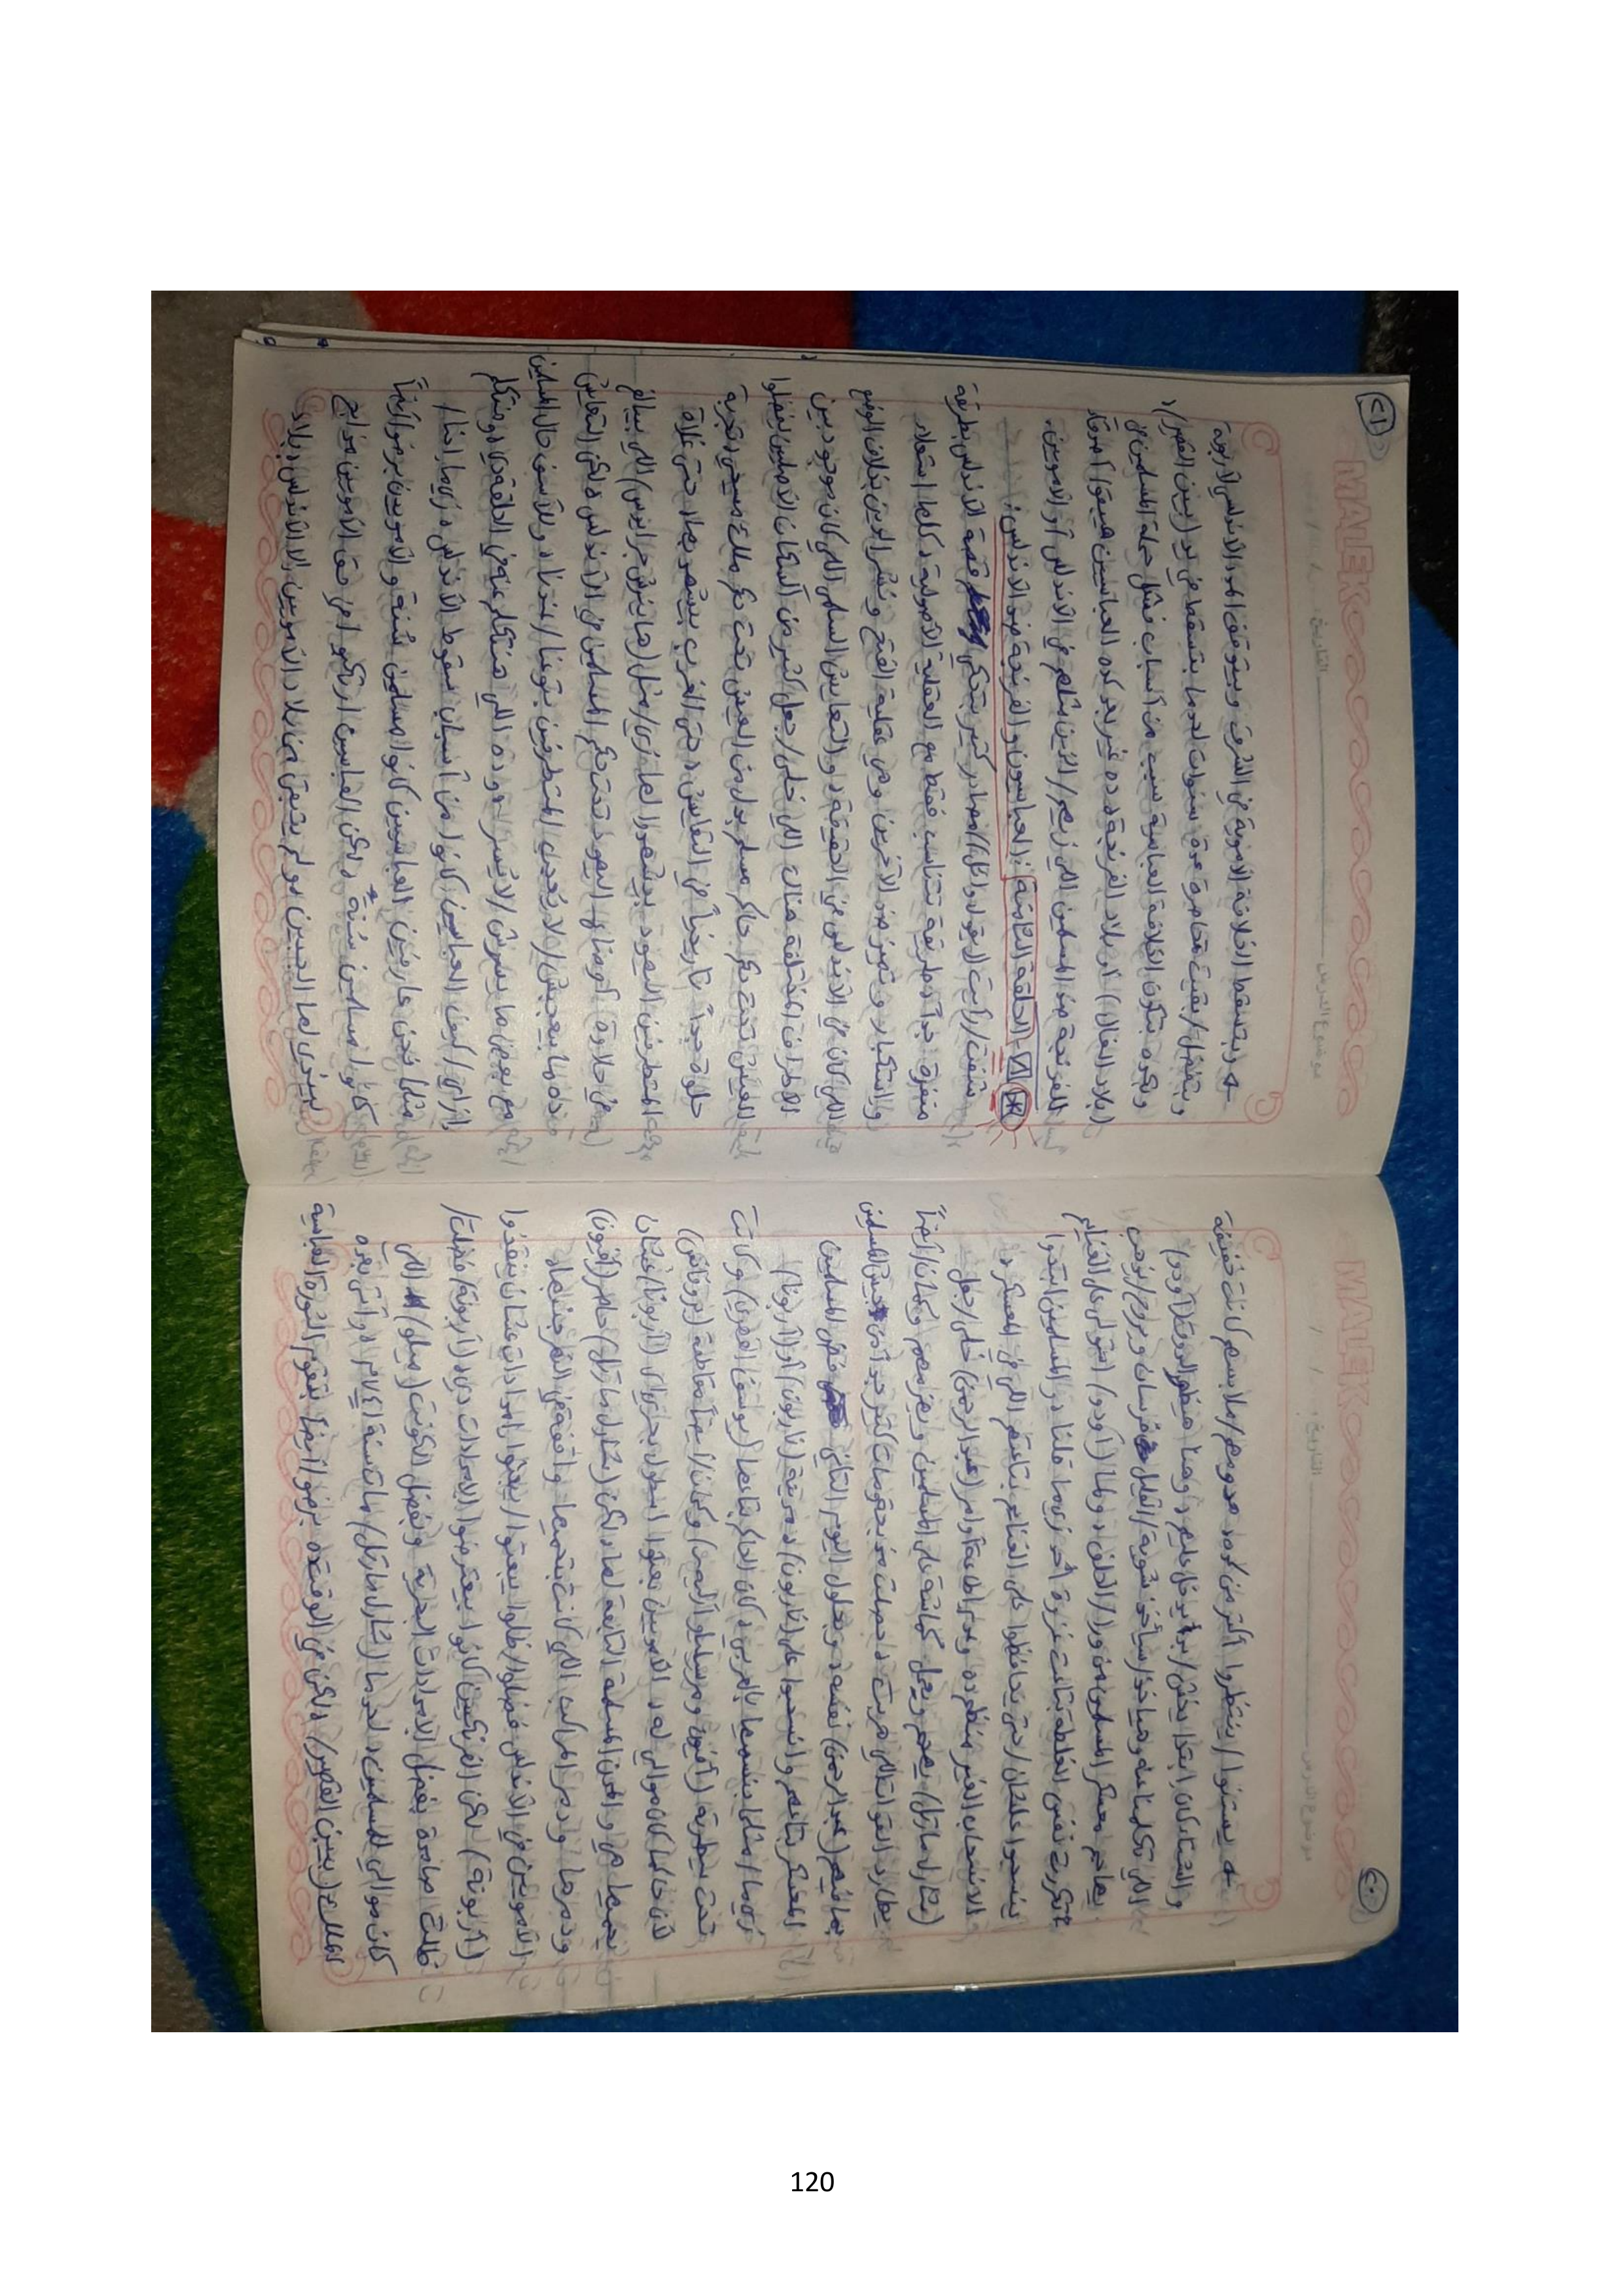 ٢٠
MALEK
التاريخ: / /
موضوع الدرس
← يستنوا/ينتظروا أكتر من كده، هدومهم/ملابسهم كانت خفيفة
والشتاء كان ابتدا يخش/يدخل عليهم، وهنا هيظهر الدوق (أودو)
اللي تكلمنا عنه وهياخد/سيأخذ شوية/القليل فرسان ويروح/يذهب
يهاجم معسكر المسلمين من ورا/الخلف، ولما (أودو) استولى على الغنايم
اتكررت نفس الغلطة بتاعت غزوة أحد زي ما قلنا، والمسلمين ابتدوا
ينسحبوا علشان/حتى يحافظوا على الغنايم بتاعتهم اللي في المعسكر،
الانسحاب الغير منظم ده وعدم إطاعة أوامر (عبد الرحمن) خلى/جعل
(شارل مارتل) يهجم ويعمل كماشة على المسلمين ويهزمهم وكمان/أيضاً
يطارد القوات اللي هربت، حصلت هجومات كتير جداً من جيش المسلمين
بما فيهم (عبد الرحمن) نفسه، وبحلول اليوم التاني فض المسلمين
المعسكر بتاعهم وانسحبوا على (ناربون)، مدينة (ناربون) أو (أربونا)/
زي ما/مثلما بنسميها بالعربي، كان الحاكم بتاعها (يوسف الفهري) وكانت
تحت سيطرته (أفنيون ومرسيليا وآرليس) وكمان/أيضاً مقاطعة (بروفانس)
لأن حاكمها كان موالي له، الأمويين بعتوا أسطول بحري لـ(أربونا)/عشان
يحميها هي والمدن المسلمة التابعة لها، لكن (شارل مارتل) حاصر (أفنيون)
ودمرها ودمر المراكب اللي كانت بتحميها واقفة في النهر جنبها،
الأمويين في الأندلس فضلوا/ظلوا يبعتوا/يبعثوا إمدادات عشان ينقذوا
(أربونة)، لكن الفرنكيين كانوا بيعترضوا الإمدادات دي، (أربونة) فضلت/
ظلت صامدة بفضل الإمدادات البحرية وبفضل الكونت (ميلو) اللي
كان موالي للمسلمين، لحد ما (شارل مارتل) مات سنة ٧٤١م، وأتى بعده
الملك (بيبين القصير)، ولكن في الوقت ده برضوا/أيضاً بتقوم الثورة العباسية
٢١
MALEK
التاريخ: / /
موضوع الدرس
← وبتسقط الخلافة الأموية في الشرق وبيتوقف المدد الأندلسي لأربونة
وبتفضل/بقيت محاصرة عدة سنوات لحد ما بتسقط في يد (بيبين القصير)،
وبكده بتكون الخلافة العباسية سبب من أسباب فشل حملة المسلمين في
(بلاد الغال) أو بلاد الفرنجة، ده غير بعد كده العباسيين هيبقوا
الفرنجة ضد المسلمين اللي زيهم/الذين مثلهم في الأندلس أو الأمويين.
٧- الحلقة الثامنة: (العباسيون والفرنجة ضد الأندلس):
شفت/رأيت (فيديوهات) ومصادر كتير بتحكي قصة الأندلس بطريقة
متحيزة جداً، طريقة تتناسب فقط مع العقلية الأصولية، كلها استعلاء
واستكبار وتميز ضد الآخرين، وهي عقلية الفتح ونشر الدين بخلاف الوضع
اللي كان في الأندلس في الحقيقة، والتعايش السلمي اللي كان موجود بين
الأطراف المختلفة هناك اللي خلى/جعل كتير من السكان الأصليين يفضلوا
العيش تحت حكم حاكم مسلم بدل من العيش تحت حكم ملك مسيحي، تجربة
حلوة جداً تاريخياً في التعايش، حتى الغرب بيشهد بيها، حتى غلاة
المتطرفين اليهود بيشهدوا لها، زي/مثل (هاينرش جرايتس) اللي بيبالغ
في حلاوة أوضاع اليهود تحت حكم المسلمين في الأندلس، لكن التعايش
ده ما بيعجبش/لا يعجب المتطرفين بتوعنا/عندنا، وللأسف حال المسلمين
مع بعض ما يسرش/لا يسر، وده اللي هنتكلم عنه في الحلقة دي، هنتكلم
ازاي/كيف العباسيين كانوا من أسباب سقوط الأندلس، زي ما إحنا/
مثلما نحن عارفين العباسيين كانوا مسلمين سُنة والأمويين برضوا/أيضاً
كانوا مسلمين سُنةٌ، لكن العباسيين ارتكبوا في حق الأمويين مذابح